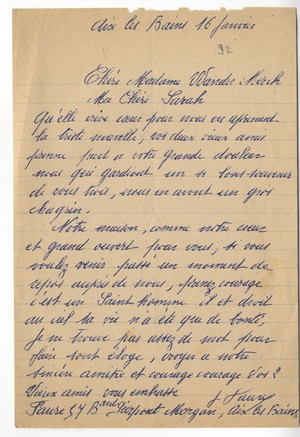 Aix les Bains 16 Janvier
92
Chère Madame Wander Merch
Ma Chère Sarah
Qu'elle vive cœur pour nous en aprenant
la triste nouvelle, vos deux vieux amis
prenne part a votre grande douleur
nous qui gardiont un si bon souvenir
de vous trois, nous en avont un gros
chagrin.
Notre maison, comme notre cœur
et grand ouvert pour vous, si vous
voulez venir passé un moment de
repos auprès de nous, prenez courage
c'est un Saint homme il et droit
au ciel sa vie n'a été que de bonté,
je ne trouve pas assez de mot pour
faire sont éloge, croyez a notre
sincère amitié et courage courage Vos 2
Vieux amis vous embrasse
J Faure
Faure 57 Bard Pierpont Morgan, Aix les Bains